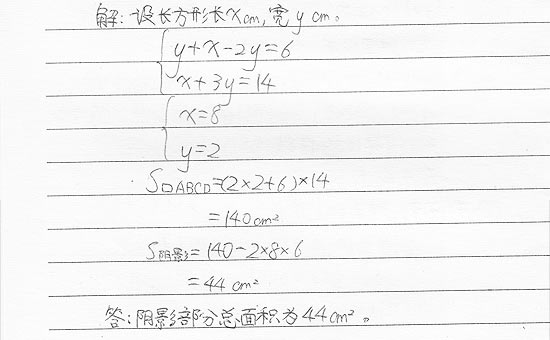 解:设长方形长xcm,宽ycm。
y+x-2y=6
x+3y=14
x=8
y=2
S□ABCD=(2×2+6)×14
=140cm²
S阴影=140-2×8×6
=44cm²
答:阴影部分总面积为44cm²。